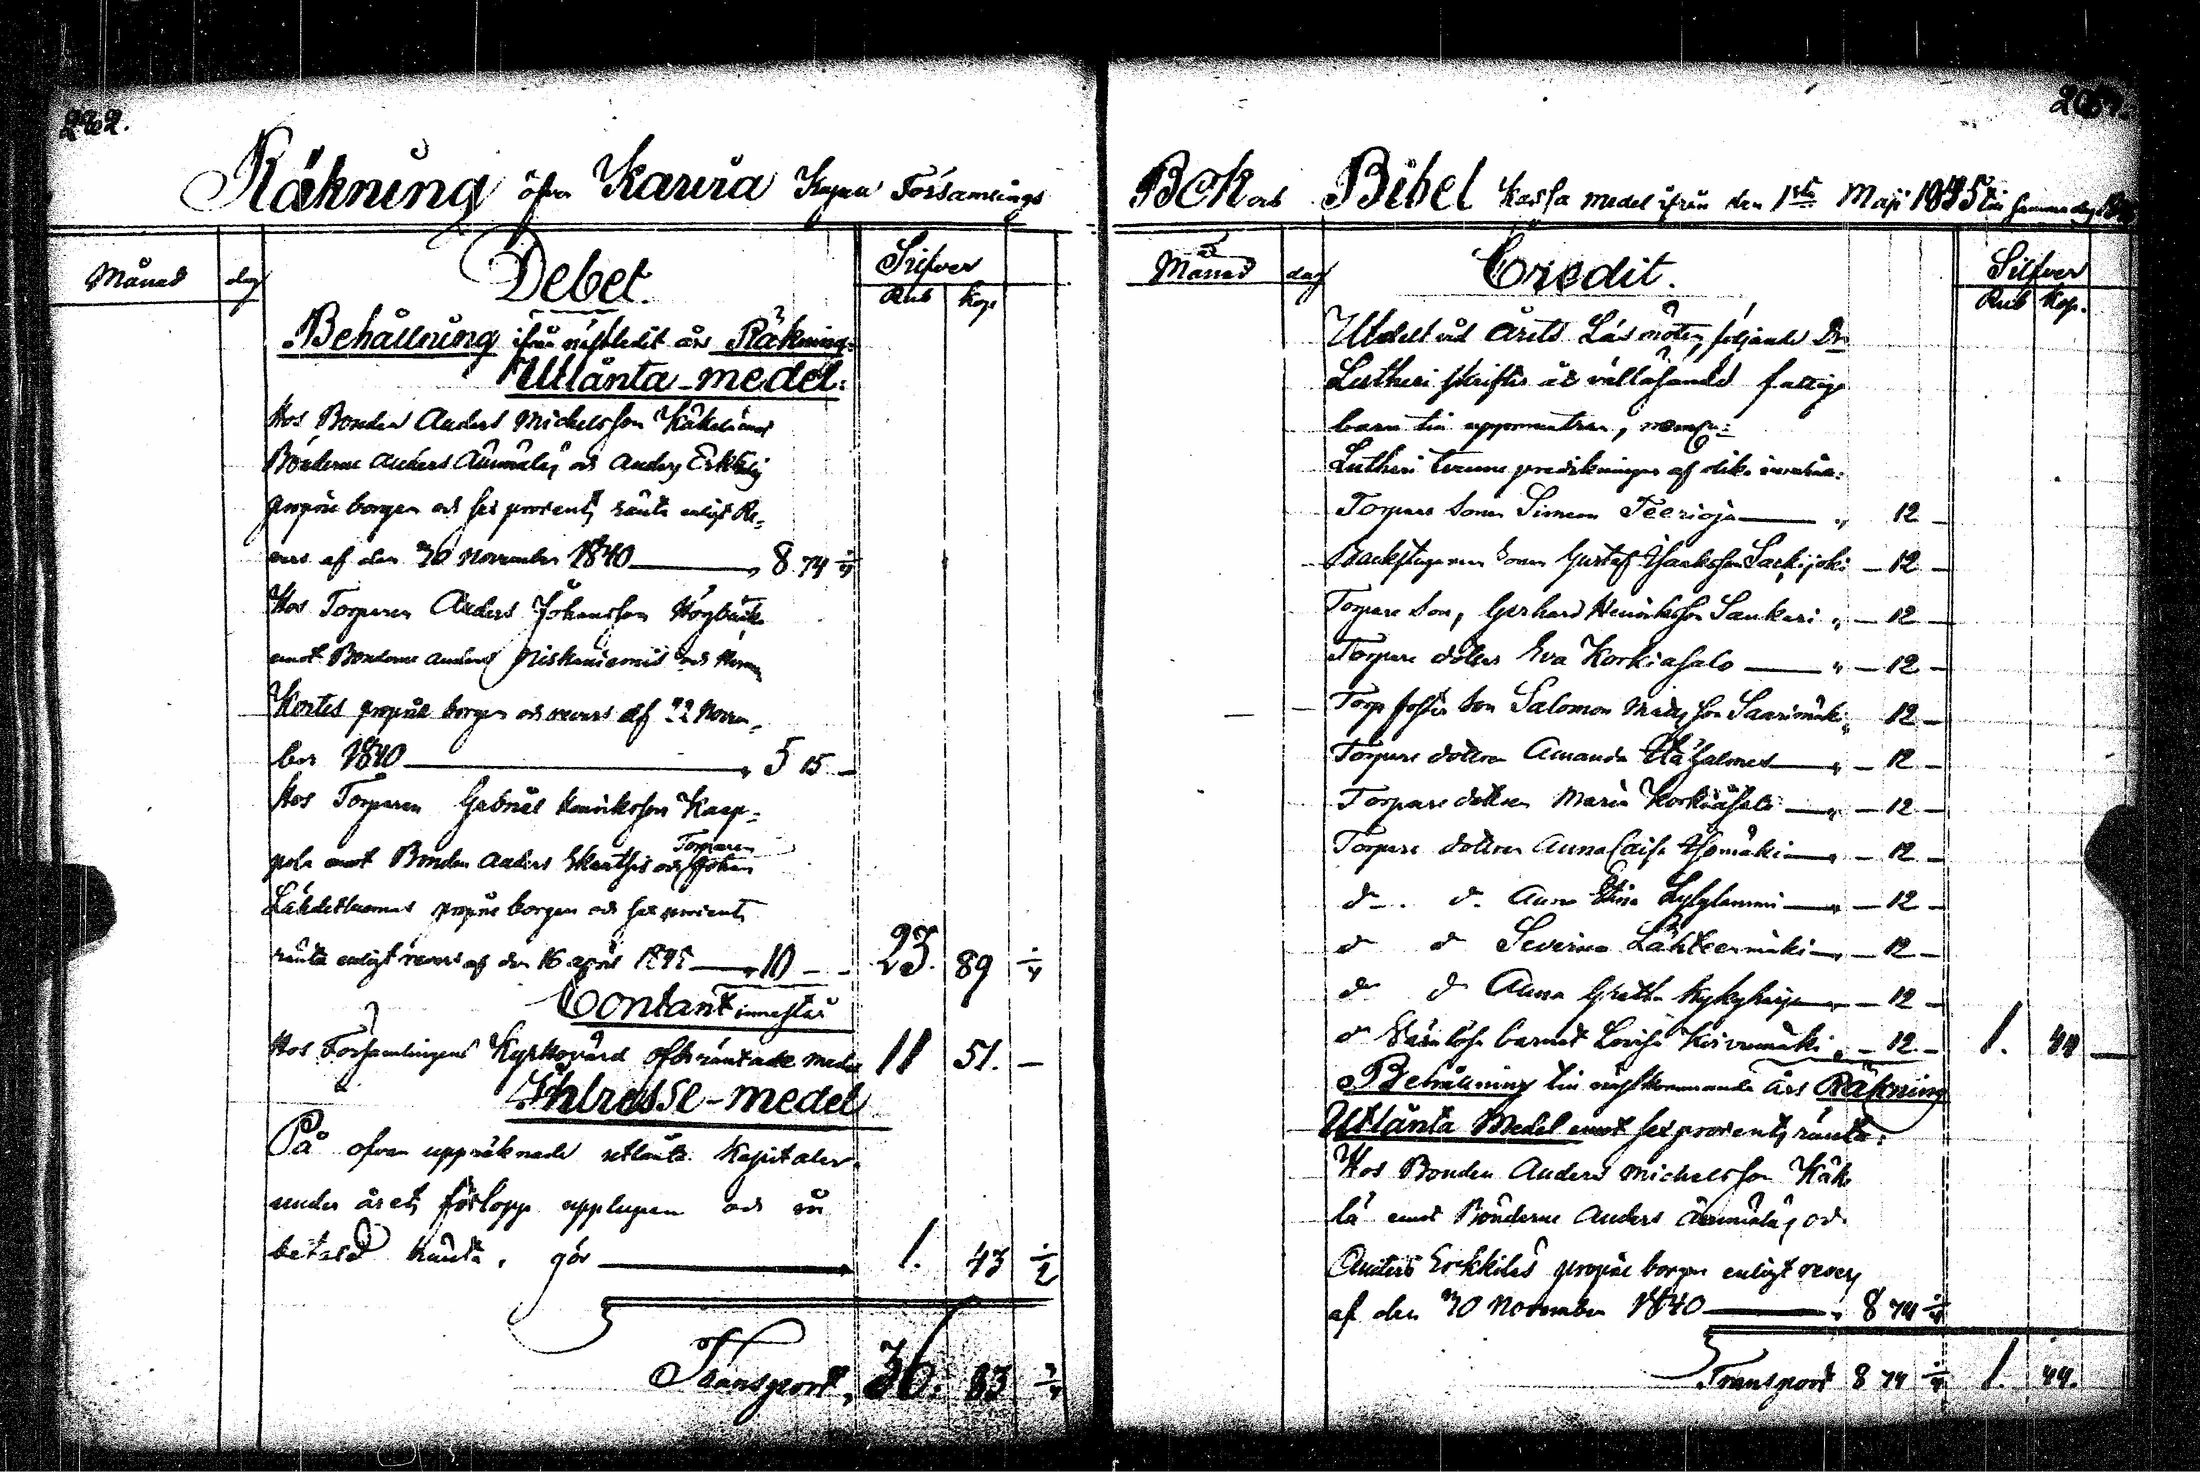 262.
Räkning öfver Karvia Kapell Församlings
Månad dag Debet Silfver
Rub Kop
Behållning ifrån nästledit års Räkning:
Utlånta-medel:
Hos Bonden Anders Michelsson Käkelä emot
Bönderne Anders Ämmälä, och Anders Erkkilä,
proprie borgen och sex procents ränta enligt Re-
vers af den 30 November 1840 — „ 8 74 1/4
Hos Torparen Anders Johansson Högback
emot Bonderne Anders Niskaniemis och
Kortes proprie borgen och revers af 22 Novem-
ber 1840 — „ 5 15 —
Hos Torparen Gabriel Henriksson Kaap-
pola emot Bonden Anders och Torparen Johan
Lähdeluomas proprie borgen och sex procents
ränta enligt revers af den 16 april — „ 10 — — 23. 89 1/4
Contant innestår
Hos Församlingens Kyrkovärd oförräntade medel 11 51. —
Intresse-medel
På ofvan uppräknade utlånta Kapitaler
under årets förlopp upplupen och
betald ränta, gör — 1. 43 1/2
Transport, 36. 83 3/4
BOK och Bibel Kassa medel ifrån den 1sta Maji 1845 till samma dag
Månad dag Credit. Silfver
Rub Kop.
Utdelt vid Årets Läs möten, följande Dr
Lutheri skrifter åt vällasande fattige
barn till uppmuntran, nemln:
Lutheri tvenne predikningar af olika innehåll:
Torpare Sonen Simeon Teerioja — „ 12 —
Backstugu son Gustaf Isaksson Sarkijoki — 12 —
Torpare Son, Gerhard Henriksson Sankari „ — 12 —
Torpare dotter Eva Korkiasalo — „ — 12 —
Torp foster Son Salomon Saarimäki „ 12 —
Torpare dottren Amanda — „ — 12 —
Torpare dottren Maria Korkiasalo — „ — 12 —
Torpare dottren Anna Caisa Isomäki — „ — 12 —
d. d. Anna Stina Sylylammi — „ — 12 —
d d Severina Lähteenmäki — „ — 12 —
d d Anna Gretha Kykyharju — „ — 12 —
d barnet Lovisa Koivumäki „ — 12 — 1. 44 —
Behållning till nästkommande Års Räkning
Utlånta Medel emot sex procents ränta:
Hos Bonden Anders Michelsson Käke
lä emot Bönderne Anders Ämmälä, och
Anders Erkkiläs proprie borgen enligt revers
af den 30 November 1840 — „ 8 74 1/4
Transport 8 74 1/4 1. 44.